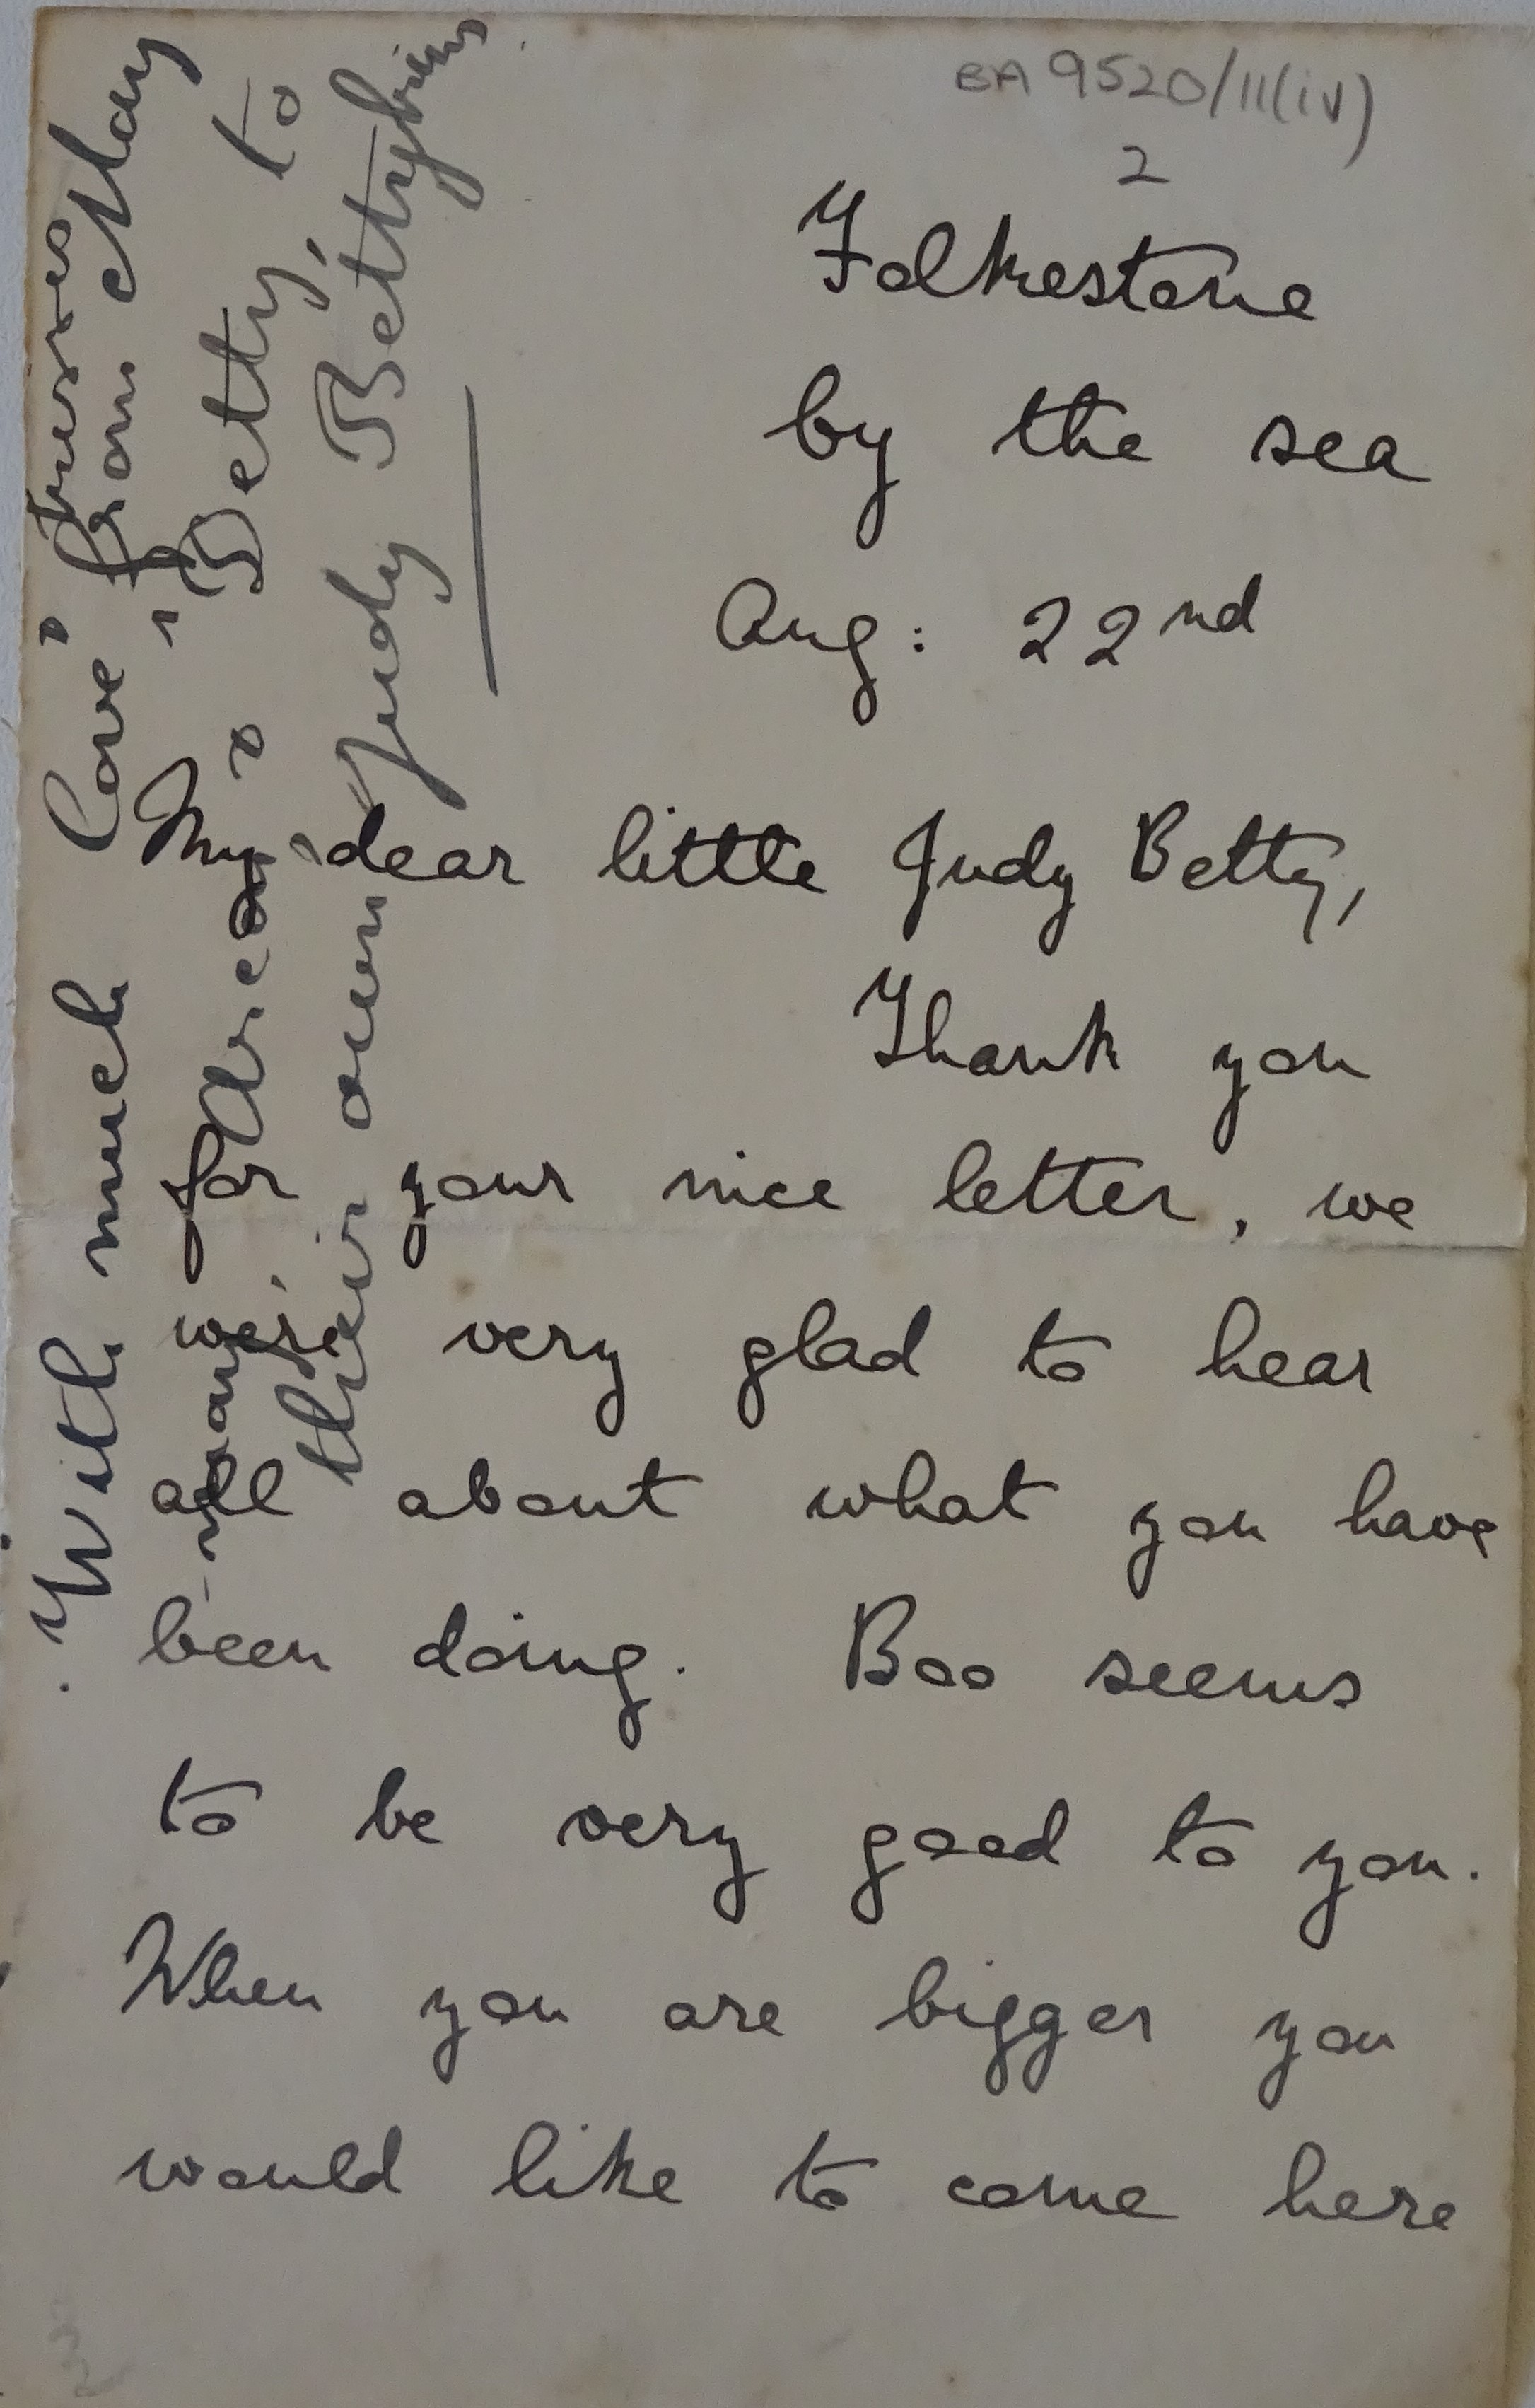 BA 9520/11(iv)
2
Folkestone
by the sea
Aug: 22nd
My dear little Judy Betty,
Thank you
for your nice letter, we
were very glad to hear
all about what you have
been doing. Boo seems
to be very good to you.
When you are bigger you
would like to come here
With much love & kisses
from
Betty, to
their own Judy Bettykins